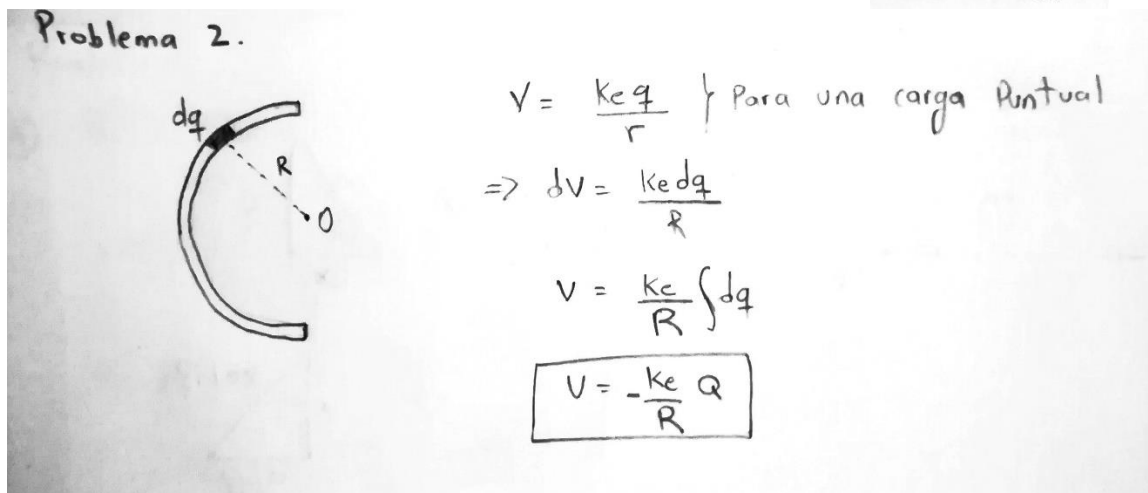 Problema 2.
dq
R
O
V = Ke q / r } Para una carga Puntual
=> dV = Ke dq / R
V = Ke / R ∫ dq
V = - Ke / R Q